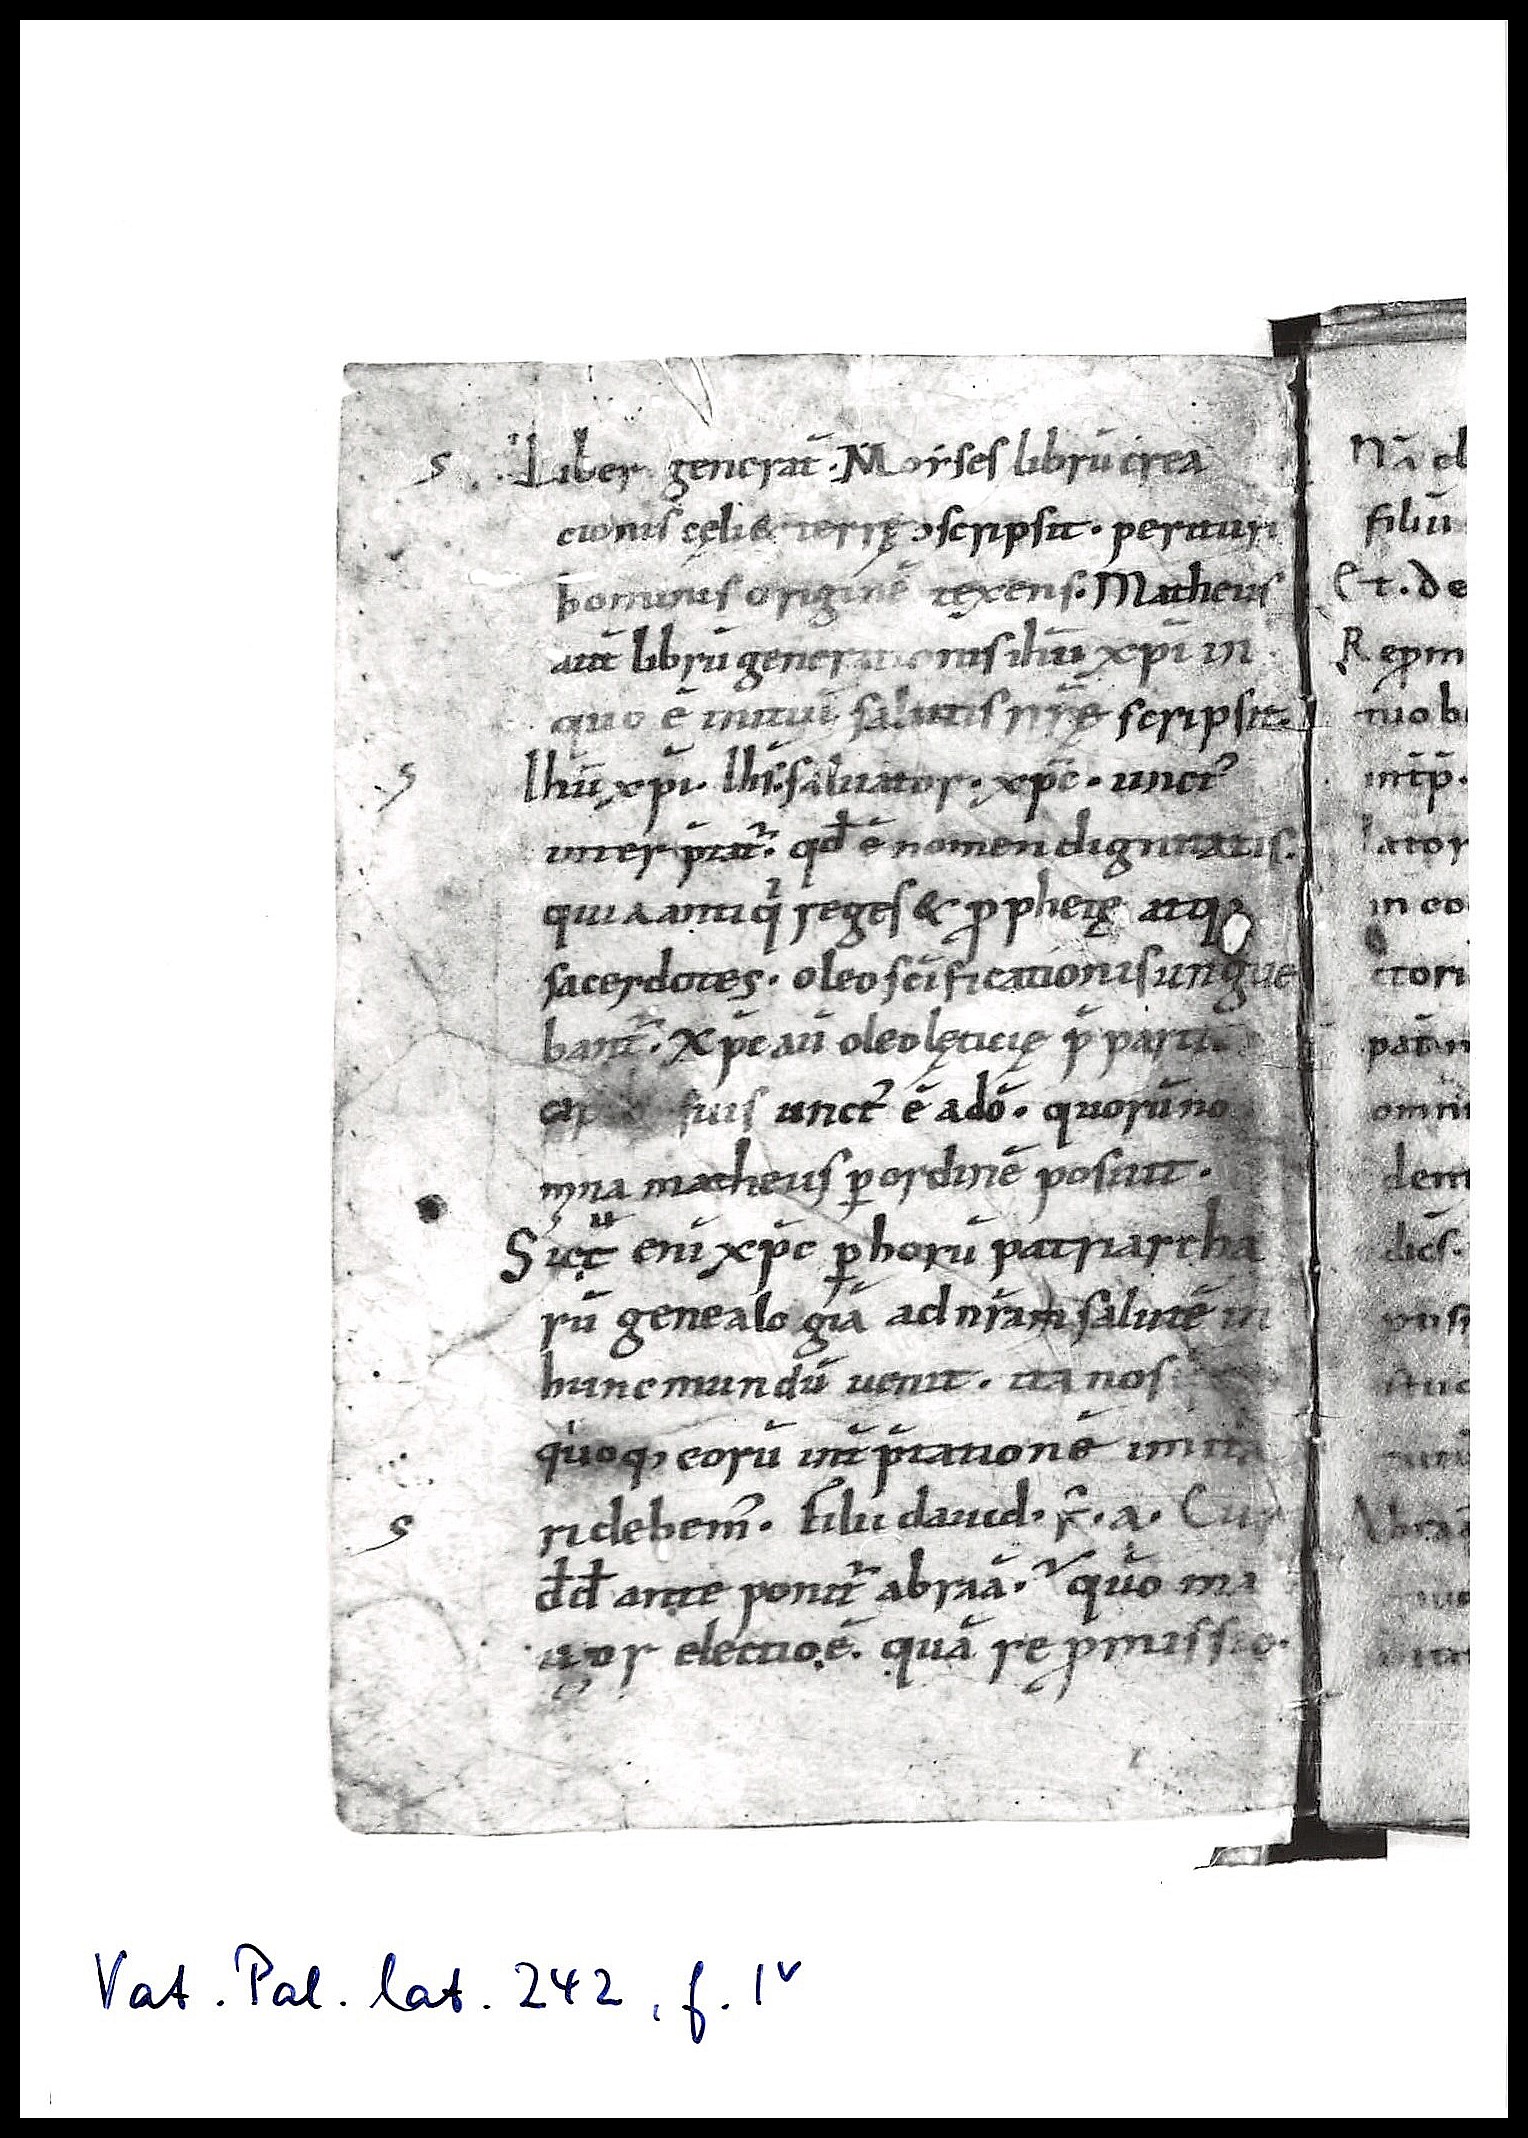 s Liber generat̄. Moises librū crea
cionis cęli & terrę ɔscripsit. perituri
hominis originē texens. Matheus
aut̄ librū generationis ihū xp̄i in
quo ē initiū salutis nr̄ę scripsit.
s Ihū xp̄i. Ihs̄. saluator. xp̄c. unct᾽
inter p̄tat᷑. qđ ē nomen dignitatis.
quia antiq̇ reges & ꝓphetę atq;
sacerdotes. oleo sc̄ificationis ungue
bant᷑. xp̄c aū oleo lęticię p̄ parti
suis unct᾽ ē a dō. quorū no
mina matheus ꝑ ordinē posuit.
Sicut̄ enī xp̄c ꝑ horū patriarcha
rū genealogiā ad nr̄am salutē in
hunc mundū uenit. ita nos
quoq; eorū int̄p̄tationē imita
s ri debem᾽. Filii dauid. f̄. a. Cur
đđ ante ponit᷑ abraā. quō ma
ior electio ē. quā repꝓmissio.
Nā
filiū
Et. de
Reꝓm
tuo b
int̄p̄.
lator
in eo
ctori
pat̄
omni
dem
dics̄.
Abraā
Vat. Pal. lat. 242, f. 1v